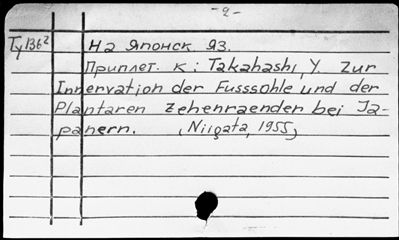 -2-
Ту1362 На Японск яз.
Приплет. к: Takahashi, Y. Zur
Innervation der Fusssohle und der
Plantaren Zehenraender bei Ja-
panern. (Niigata, 1955)